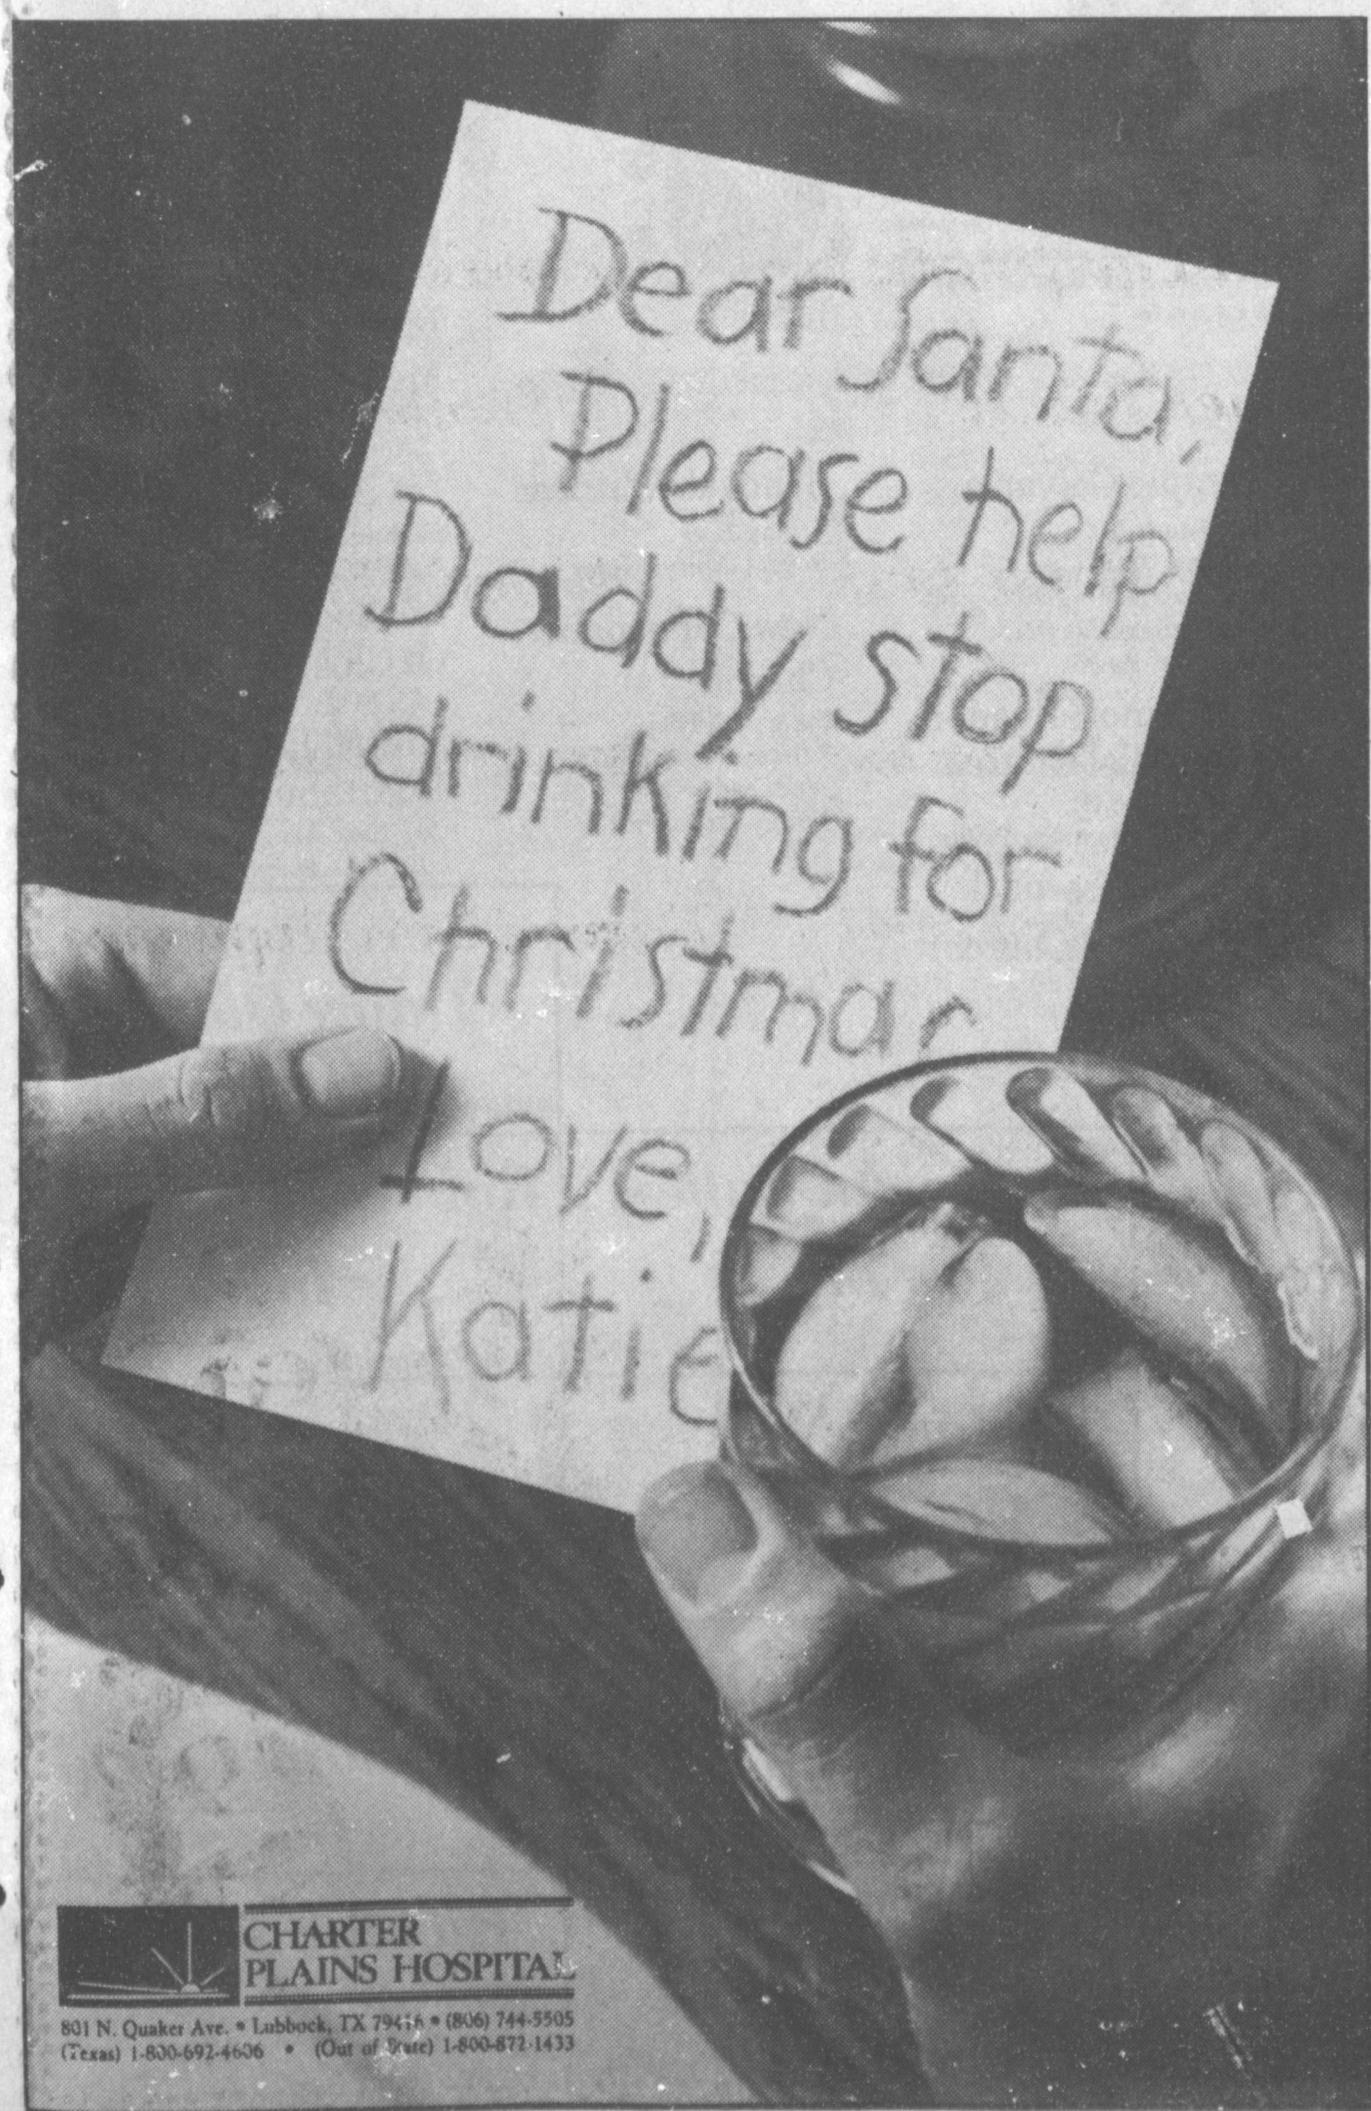 Dear Santa,
Please help
Daddy stop
drinking for
Christmas
Love,
Katie
CHARTER
PLAINS HOSPITAL
801 N. Quaker Ave. • Lubbock, TX 79416 • (806) 744-5505
(Texas) 1-800-692-4606 • (Out of State) 1-800-872-1433